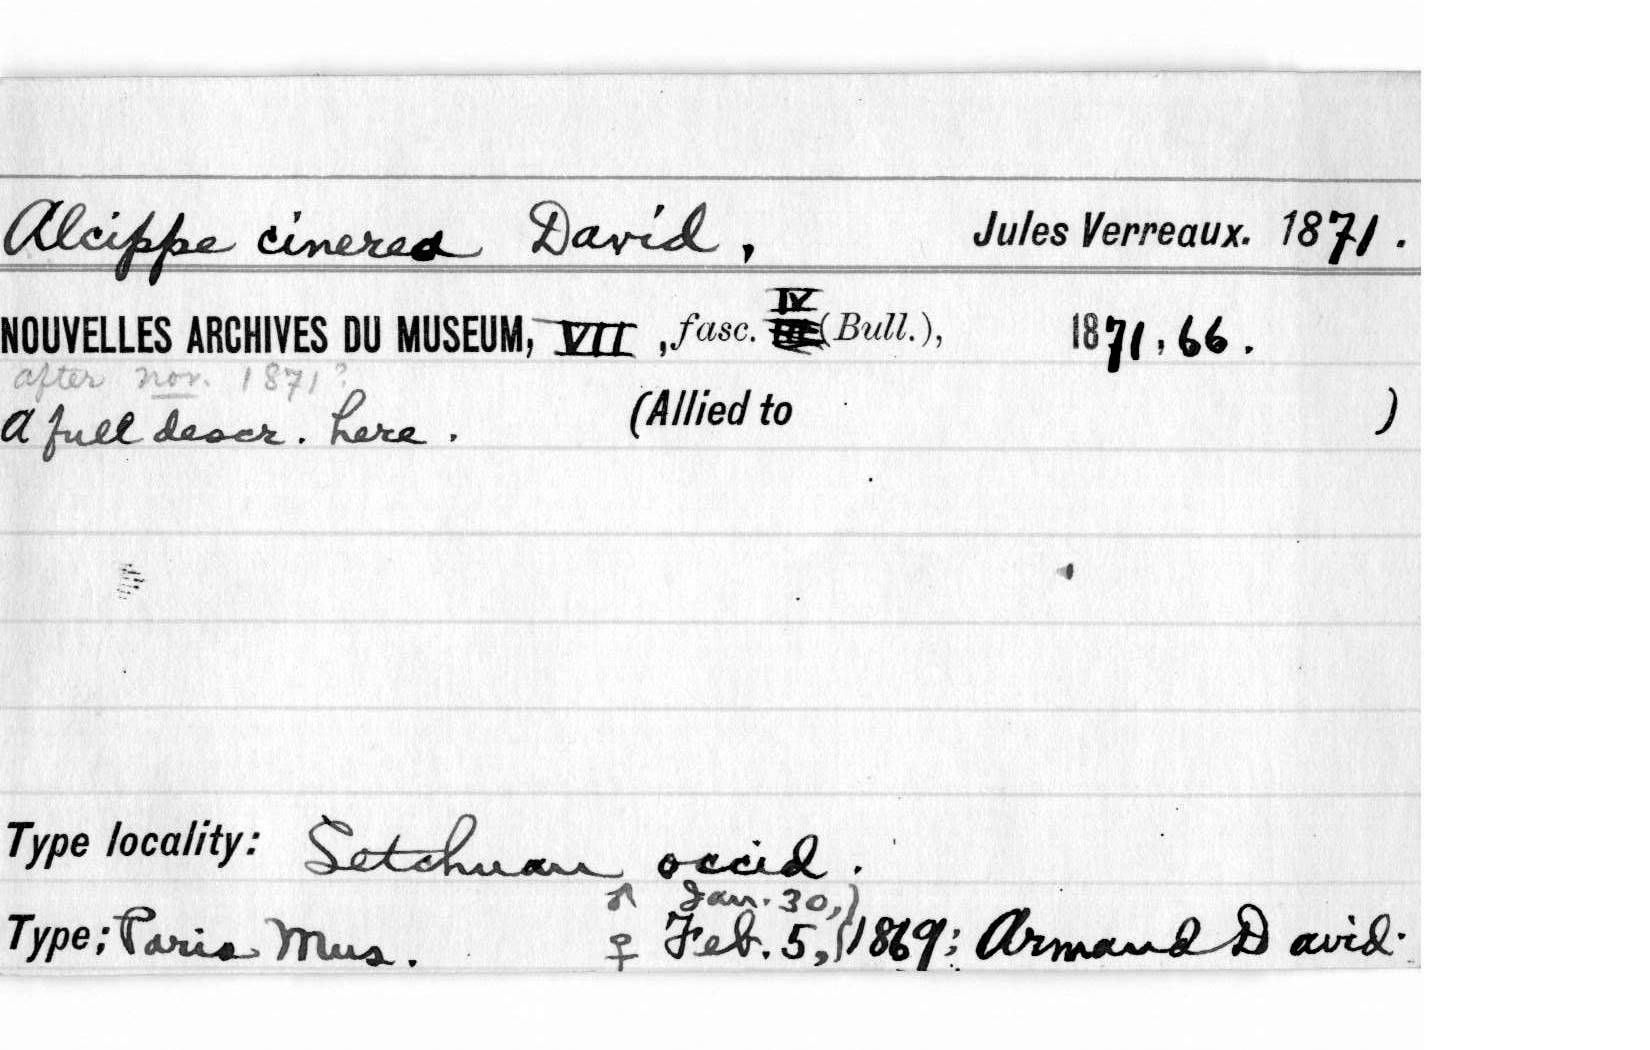 Alcippe cinerea David, Jules Verreaux. 1871.
NOUVELLES ARCHIVES DU MUSEUM, VII, fasc. IV (Bull.), 1871, 66.
after nov. 1871?
A full descr. here. (Allied to )
Type locality: Setchuan occid.
♂ Jan. 30,)
Type; Paris Mus. ♀ Feb. 5,) 1869; Armand David.